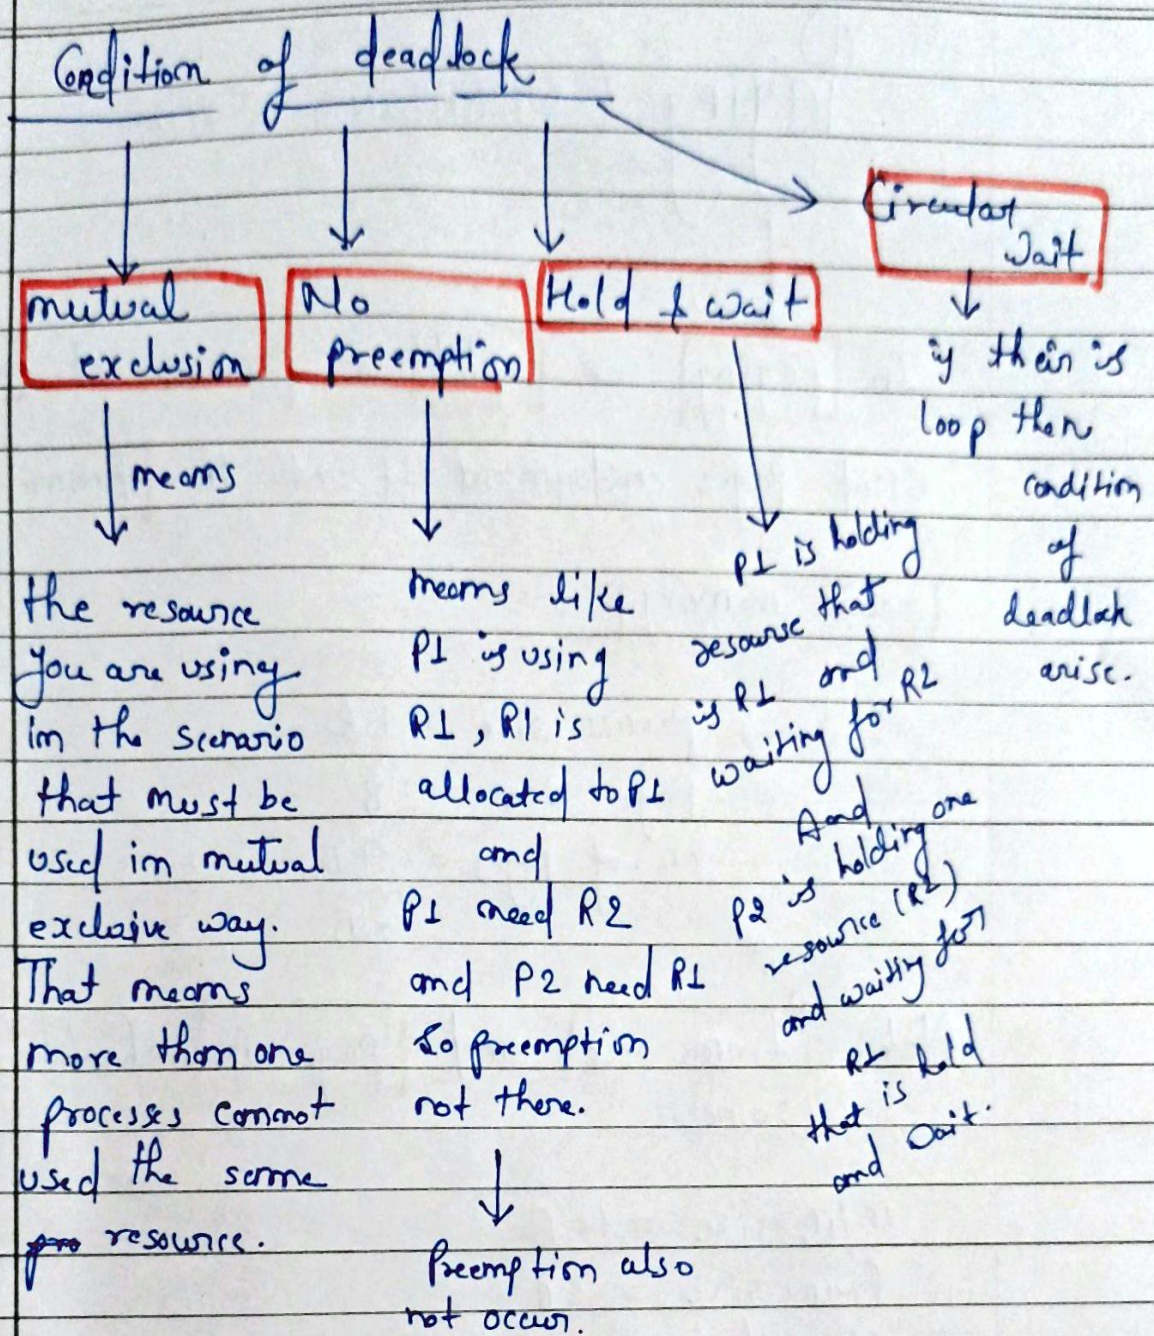 Condition of deadlock
mutual
exclusion
means
the resource
you are using
in the scenario
that must be
used in mutual
exclusive way.
That means
more than one
processes cannot
used the same
resource.
No
preemption
means like
P1 is using
R1, R1 is
allocated to P1
and
P1 need R2
and P2 need R1
So preemption
not there.
Preemption also
not occur.
Hold & wait
P1 is holding
resourse that
is R1 and
waiting for R2
And
P2 is holding one
resource (R2)
and waiting for
R1
that is hold
and wait.
Circular
Wait
if their is
loop then
condition
of
deadlock
arise.